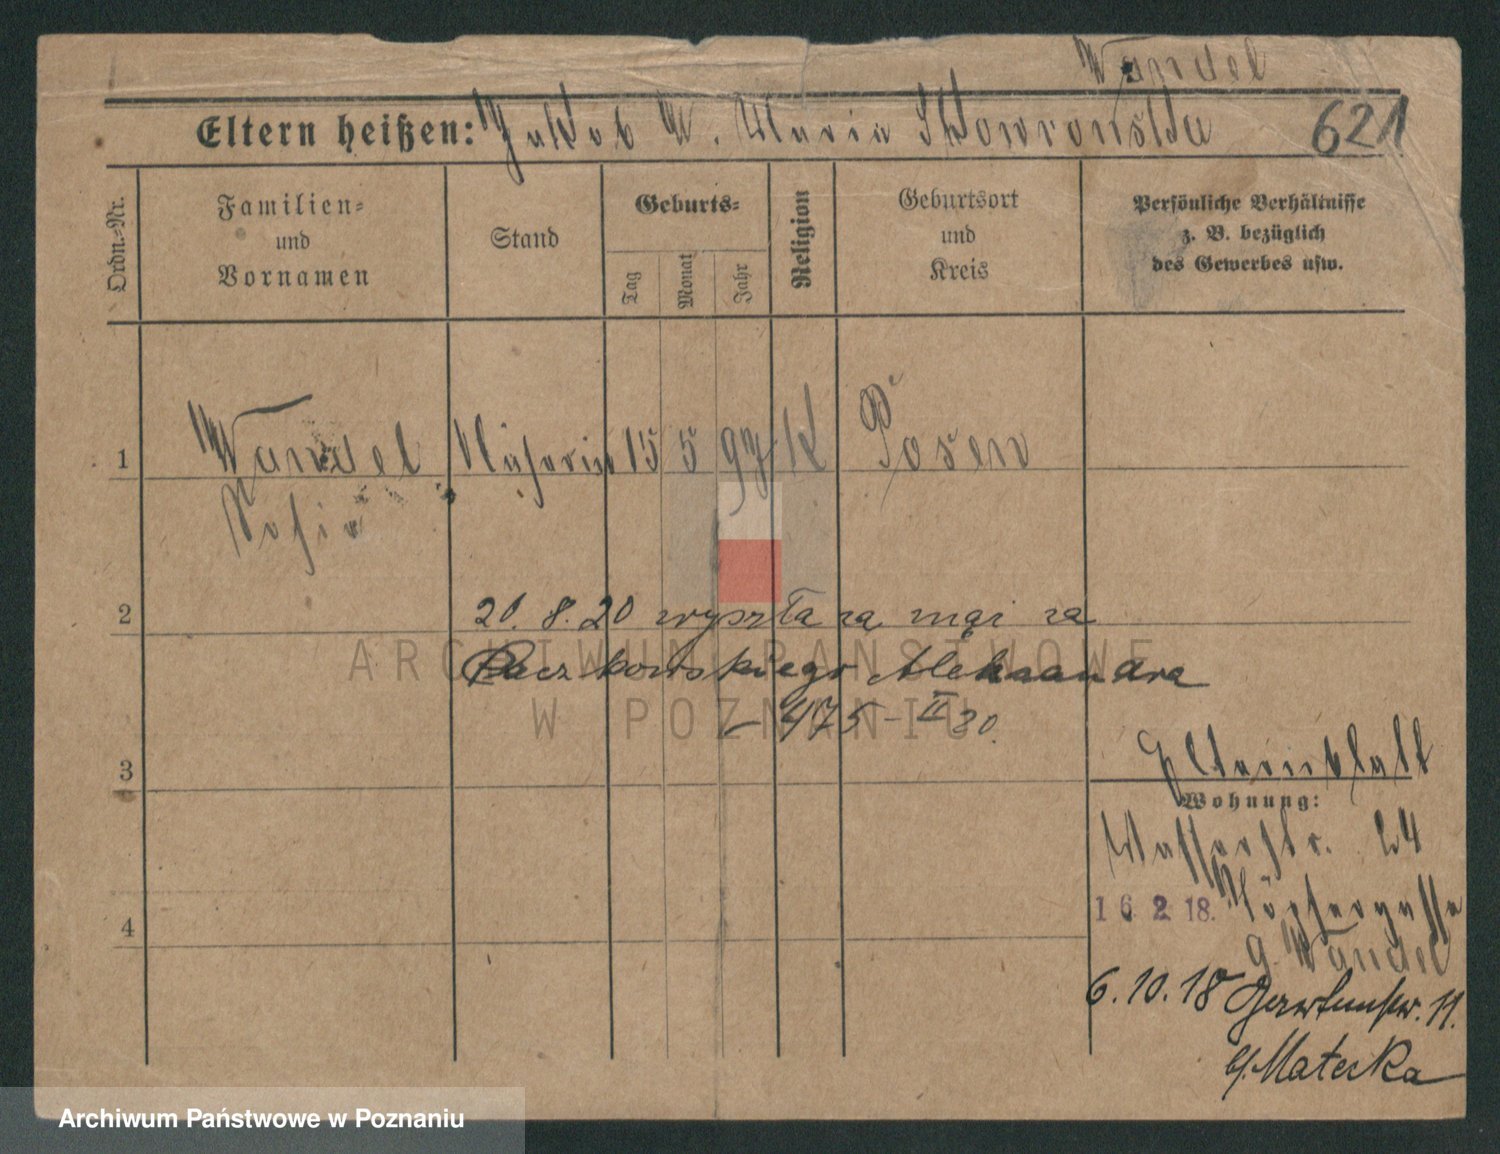 Wandel
Eltern heißen: Jakob W. Maria Skowronska 621
Ordn.-Nr.
Familien-
und
Vornamen
Stand
Geburts-
Tag
Monat
Jahr
Religion
Geburtsort
und
Kreis
Persönliche Verhältnisse
z. B. bezüglich
des Gewerbes usw.
1 Wandel Näherin 15 5 97 K Posen
Sofie
2 20. 8. 20 wyszła za mąż za
Raczkowskiego Aleksandra
475 - II 20.
3 Elternblatt
Wohnung:
Wasserstr. 24
4 16 2 18.
Wandel
6.10.18 11.
b/. Matecka
ARCHIWUM PAŃSTWOWE
W POZNANIU
Archiwum Państwowe w Poznaniu